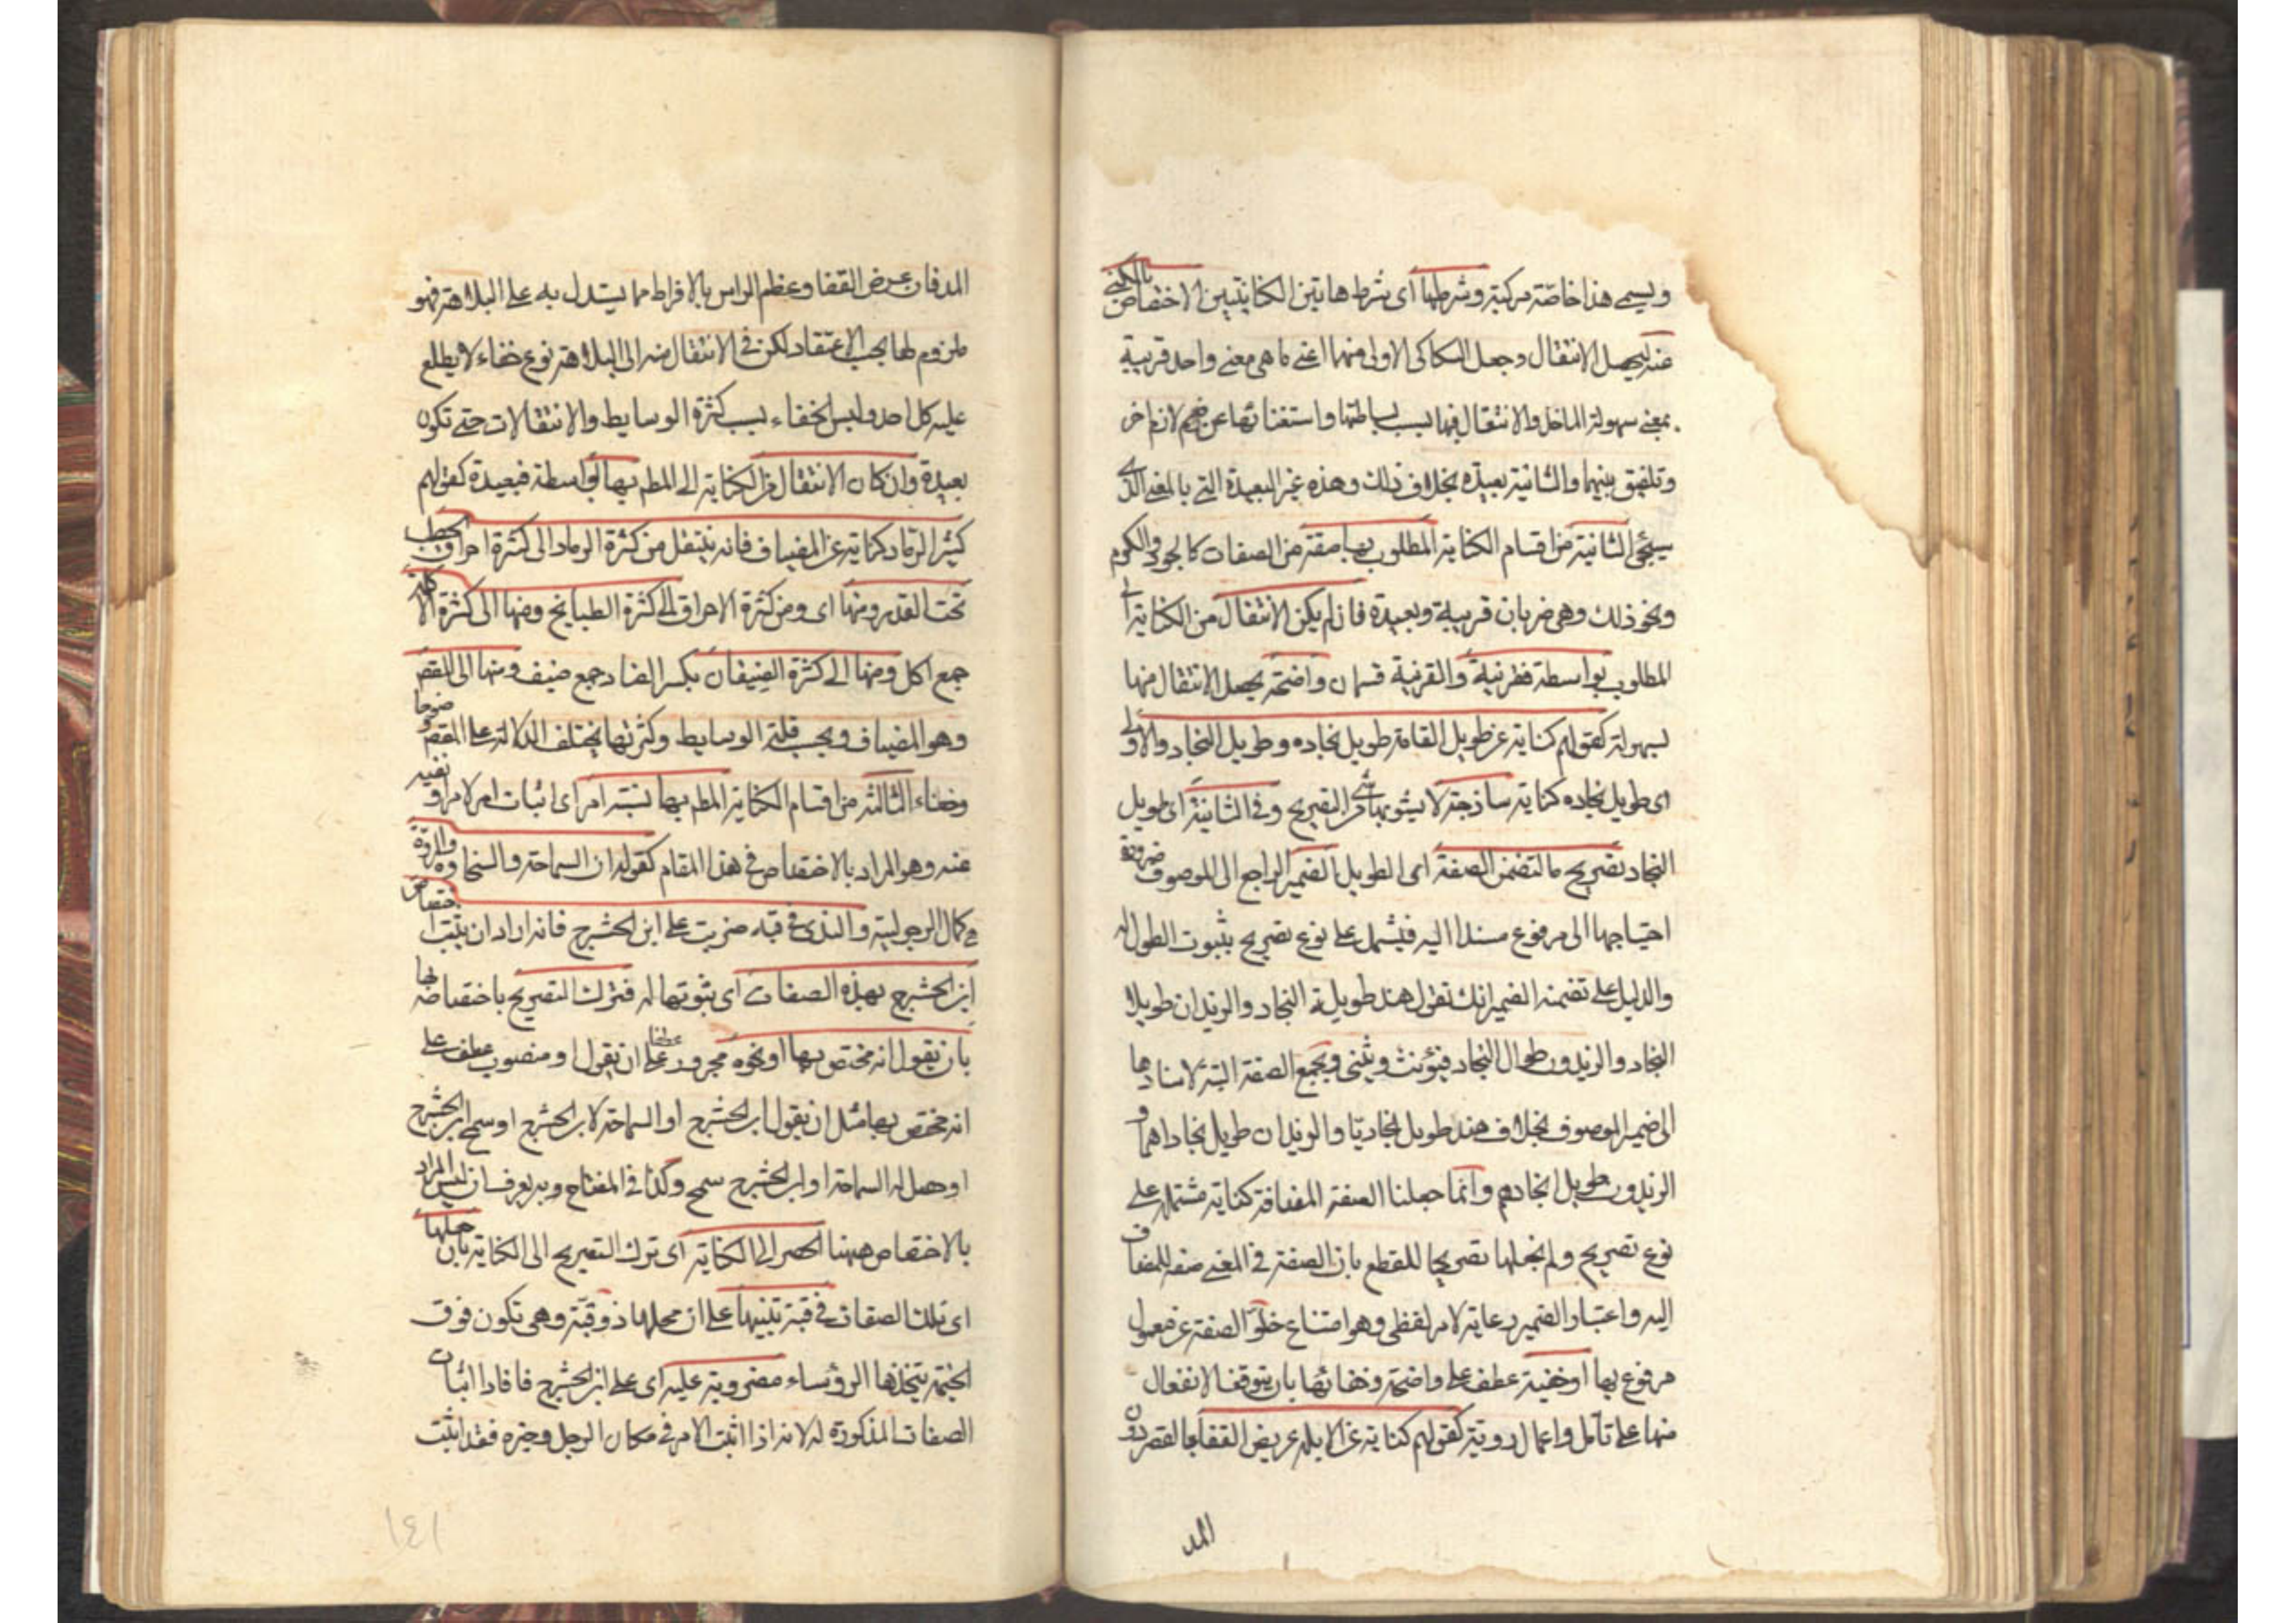 ويسمى هذا خاصة مركبة وشرطها اى شرط هاتين الكنايتين الاختصاص بالمكنى
عنه ليحصل الانتقال وجعل السكاكى الاولى منها اعنى ما هى معنى واحد قريبة
بمعنى سهولة الماخذ والانتقال فيها بسبب بساطتها واستغنائها عن ضم لازم اخر
وتلفيق بينهما والثانية بعيدة بخلاف ذلك وهذه غير البعيدة التى بالمعنى الذى
سيجئ الثانية من اقسام الكناية المطلوب بها صفة من الصفات كالجود والكرم
ونحو ذلك وهى ضربان قريبة وبعيدة فان لم يكن الانتقال من الكناية الى
المطلوب بواسطة فقريبة والقريبة قسمان واضحة يحصل الانتقال منها
بسهولة كقولهم كناية عن طويل القامة طويل نجاده وطويل النجاد والاولى
اى طويل نجاده كناية ساذجة لا يشوبها شئ من التصريح وفى الثانية اى طويل
النجاد تصريح ما لتضمن الصفة اى الطويل الضمير الراجع الى الموصوف ضرورة
احتياجها الى مرفوع مسند اليه فيشمل على نوع تصريح بثبوت الطول له
والدليل على تضمنه الضمير انك تقول هند طويلة النجاد والزيدان طويلا
النجاد والزيدون طوال النجاد فيؤنث ويثنى ويجمع الصفة البتة لاسنادها
الى ضمير الموصوف بخلاف هند طويل نجادها والزيدان طويل نجادهما و
الزيدون طويل نجادهم وانما جعلنا الصفة المضافة كناية مشتملة على
نوع تصريح ولم نجعلها تصريحا للقطع بان الصفة فى المعنى صفة للمضاف
اليه واعتبار الضمير رعاية لامر لفظى وهو امتناع خلو الصفة عن معمول
مرفوع بها او خفية عطف على واضحة وخفائها بان يتوقف الانتقال
منها على تامل واعمال روية كقولهم كناية عن الابله عريض القفا بالقصر دون
المد
المد فان عرض القفا وعظم الراس بالافراط مما يستدل به على البلاهة فهو
ملزوم لها بحسب الاعتقاد لكن فى الانتقال منه الى البلاهة نوع خفاء لا يطلع
عليه كل احد وليس الخفاء بسبب كثرة الوسايط والانتقالات حتى تكون
بعيدة وان كان الانتقال من الكناية الى المطم بها بواسطة فبعيدة كقولهم
كثير الرماد كناية عن المضياف فانه ينتقل من كثرة الرماد الى كثرة احراق الحطب
تحت القدر ومنها اى ومن كثرة الاحراق الى كثرة الطبايخ ومنها الى كثرة الاكلة
جمع اكل ومنها الى كثرة الضيفان بكسر الضاد جمع ضيف ومنها الى المقص
وهو المضياف وبحسب قلة الوسايط وكثرتها يختلف الدلالة على المقص وضوحا
وخفاء الثالثة من اقسام الكناية المطم بها نسبة امر اى اثبات امر لامر او نفيه
عنه وهو المراد بالاختصاص فى هذا المقام كقوله ان السماحة والسخاوة والمروة
هى كمال الرجولية والندى فى قبة ضربت على ابن الحشرج فانه اراد ان يثبت اختصاص
ابن الحشرج بهذه الصفات اى ثبوتها له فترك التصريح باختصاصه بها
بان يقول انه مختص بها او نحوه مجرور عطفا على ان يقول او منصوب عطف على
انه مختص بها مثل ان يقول ابن الحشرج او السماحة لابن الحشرج او سمح ابن الحشرج
او حصل له السماحة او ابن الحشرج سمح وكذا فى المفتاح وبه يعرف ان ليس المراد
بالاختصاص ههنا الحصر الى الكناية اى ترك التصريح الى الكناية بان جعلها
اى تلك الصفات فى قبة تنبيها على ان محلها ذو قبة وهى تكون فوق
الخيمة يتخذها الرؤساء مضروبة عليه اى على ابن الحشرج فافاد اثبات
الصفات المذكورة له لانه اذا اثبت الامر فى مكان الرجل وحيزه فقد اثبت
١٤١